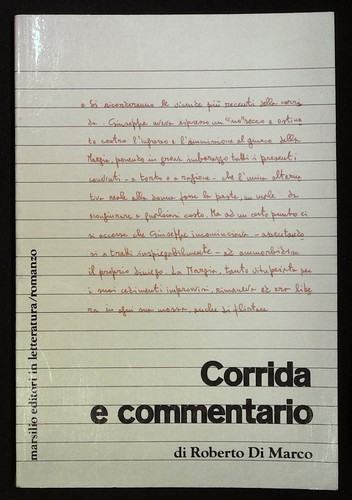 o Si ricorderanno le vicende più recenti della corri
da. Giuseppe aveva espresso un "no" secco e ostina
to contro l'ingresso e l'ammissione al giuoco della
Marzia, ponendo in grave imbarazzo tutti i presenti
convinti - a torto o a ragione - che l'unica alterna
tiva reale alla donna fosse la peste, un male da
scongiurare a qualsiasi costo. Ma ad un certo punto ci
si accorse che Giuseppe incominciava - assentando
si a tratti inspiegabilmente - ad ammorbidire
il proprio diniego. La Marzia, tanto vituperata per
i suoi cedimenti improvvisi, rimaneva ed era libe
ra in ogni sua mossa, anche di flirtare
marsilio editori in letteratura/romanzo
Corrida
e commentario
di Roberto Di Marco